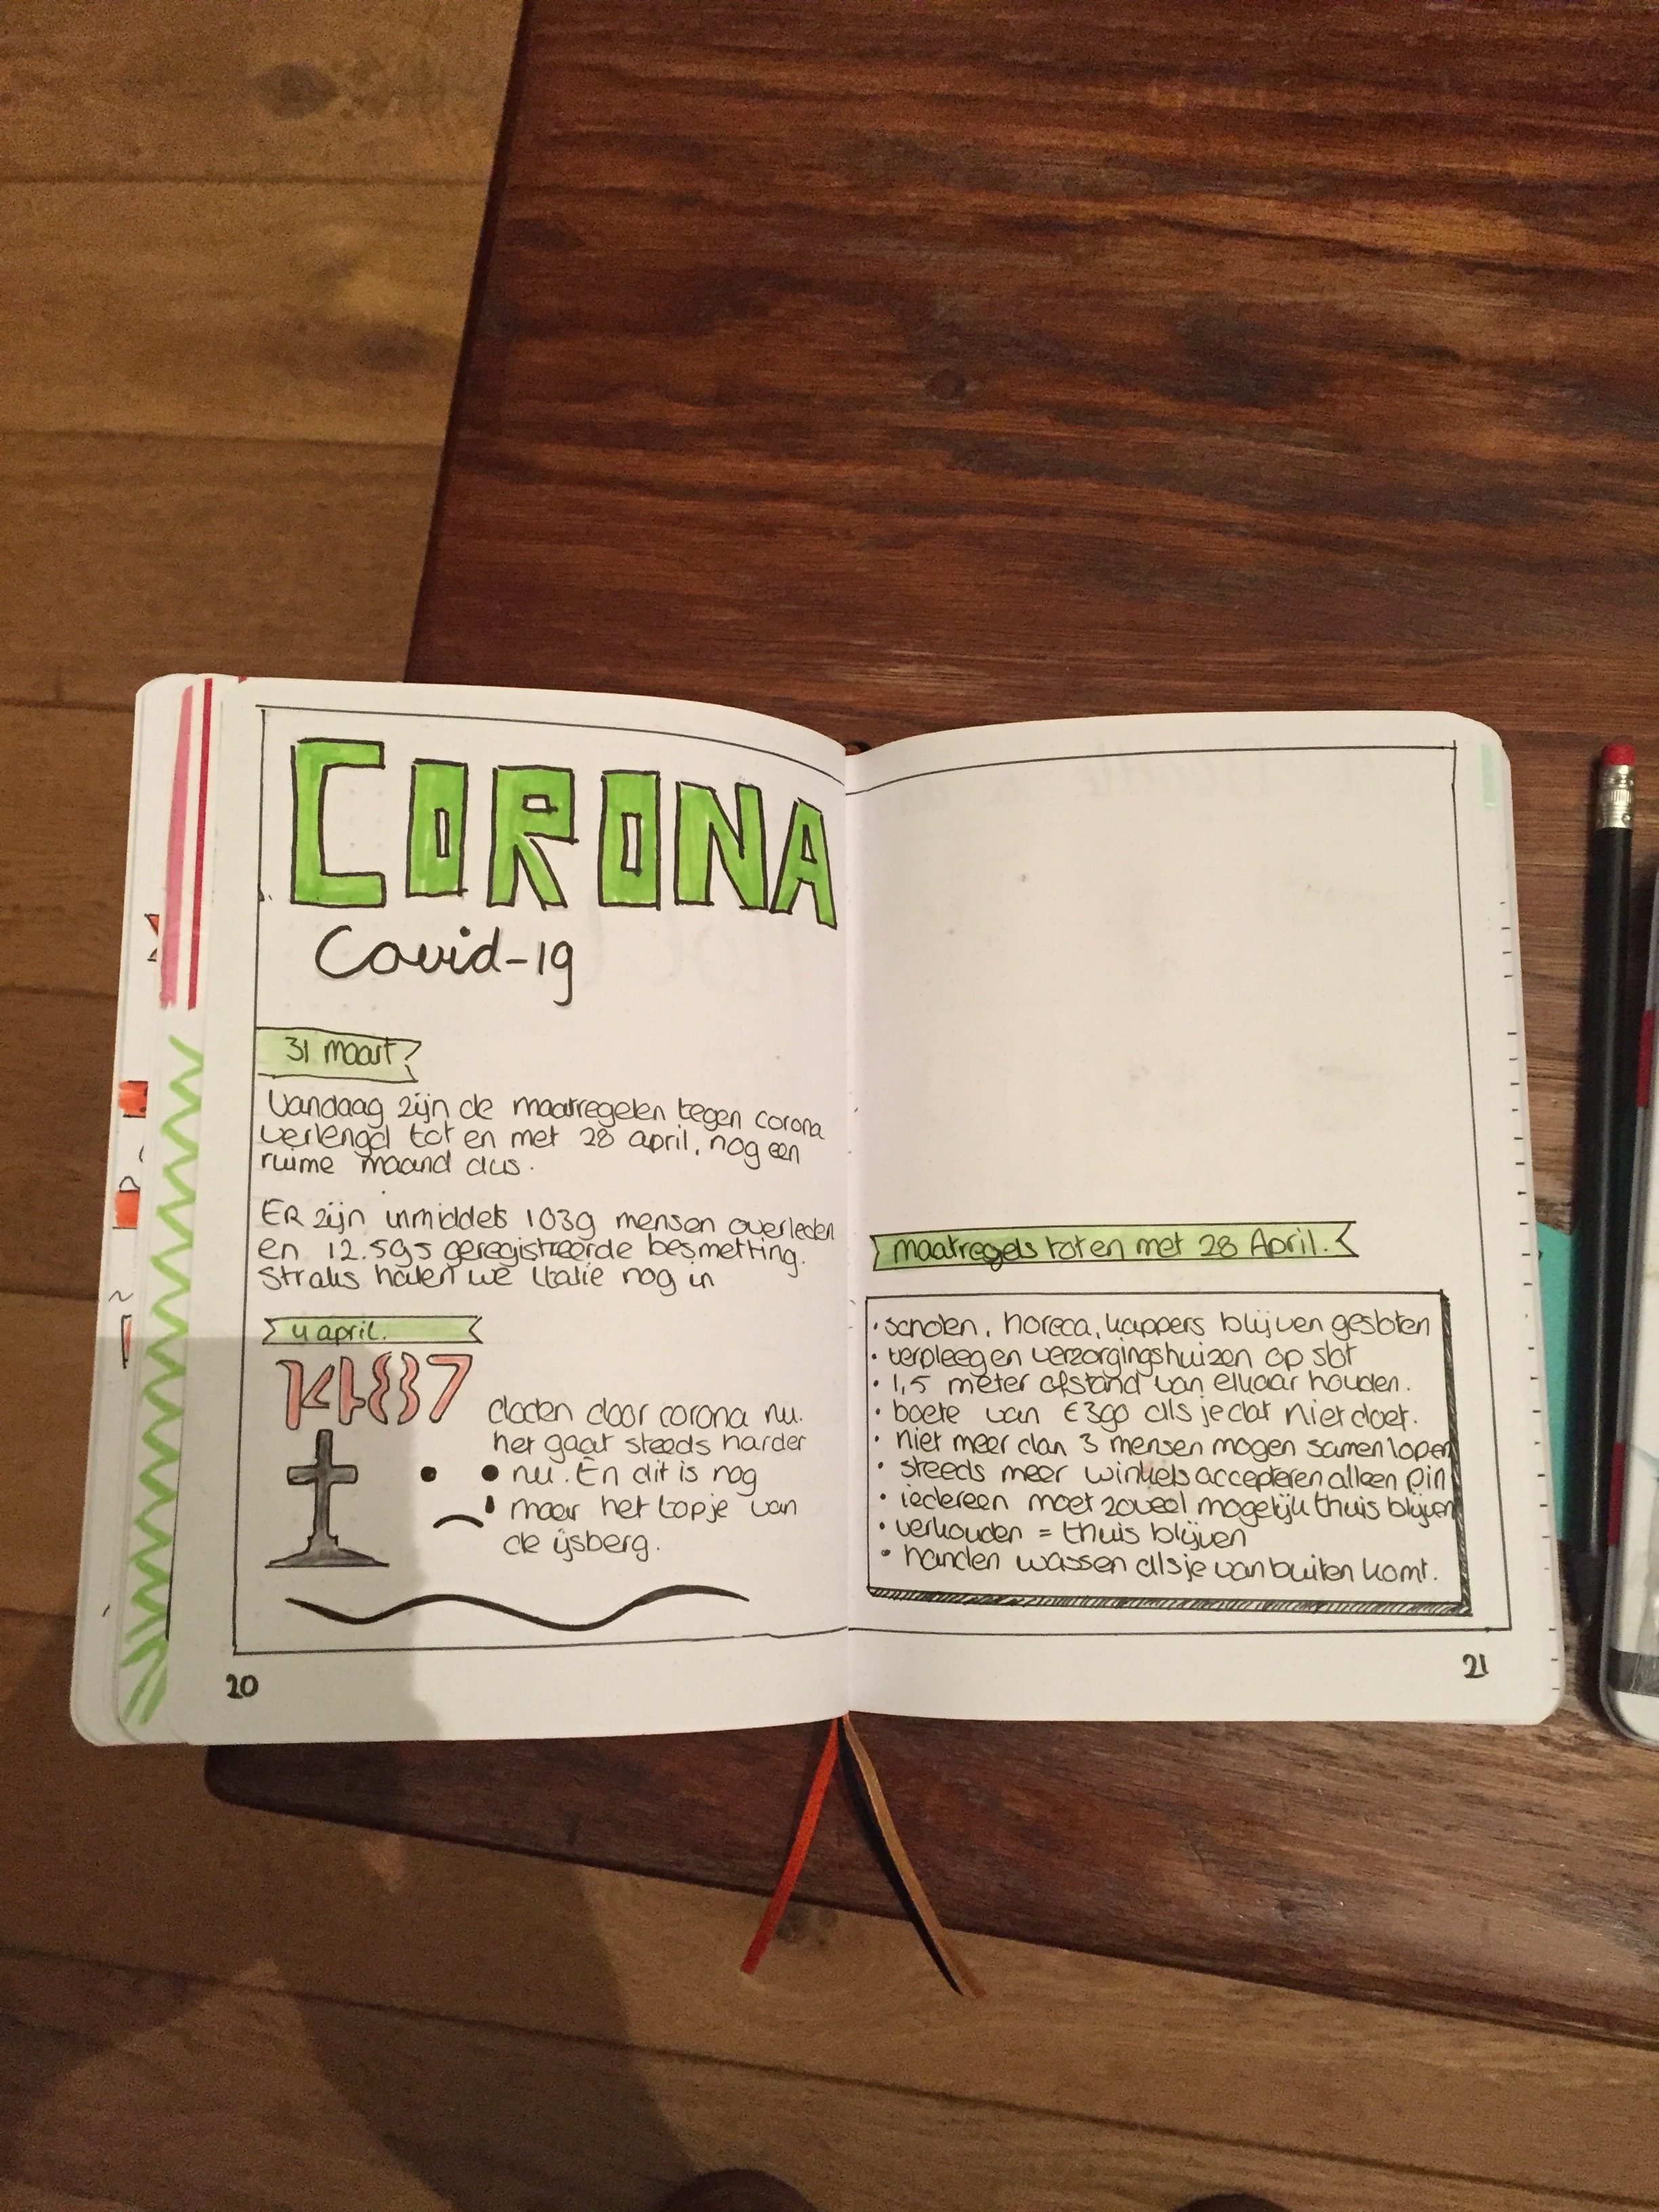 CORONA
Covid-19
31 maart
Vandaag zijn de maatregelen tegen corona
verlengd tot en met 28 april, nog een
ruime maand dus.
ER zijn inmiddels 1039 mensen overleden
en 12.595 geregistreerde besmetting.
Straks halen we Italie nog in
4 april.
1487
doden door corona nu.
het gaat steeds harder
nu. En dit is nog
maar het topje van
de ijsberg.
20
maatregels tot en met 28 April.
• scholen, horeca, kappers blijven gesloten
• verpleeg en verzorgingshuizen op slot
• 1,5 meter afstand van elkaar houden.
• boete van €390 als je dat niet doet.
• niet meer dan 3 mensen mogen samen lopen
• steeds meer winkels accepteren alleen pin
• iedereen moet zoveel mogelijk thuis blijven
• verkouden = thuis blijven
• handen wassen als je van buiten komt.
21